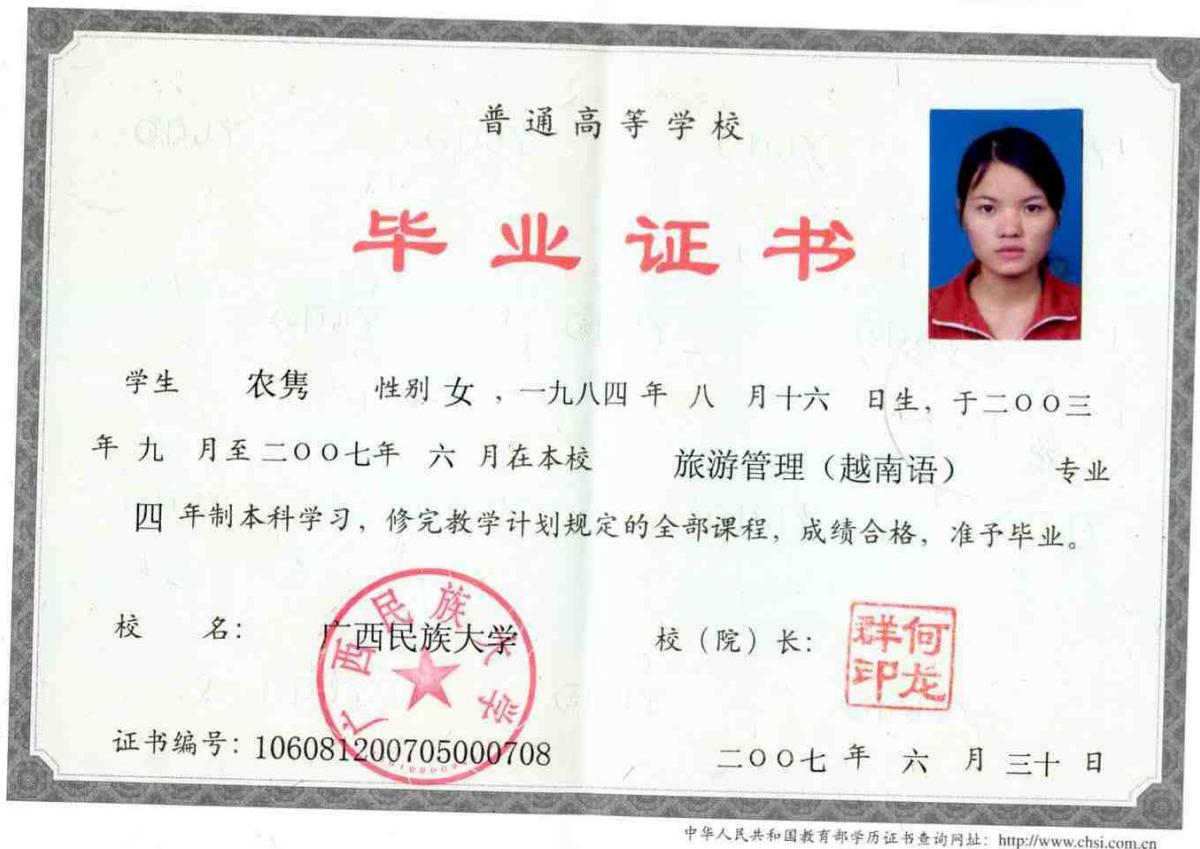 普通高等学校
毕业证书
学生 农隽 性别 女 ，一九八四 年 八 月十六 日生，于二〇〇三
年 九 月至 二〇〇七年 六 月在本校 旅游管理（越南语） 专业
四 年制本科学习，修完教学计划规定的全部课程，成绩合格，准予毕业。
校 名： 广西民族大学 校（院）长：
广西民族大学
何龙群印
证书编号：106081200705000708 二〇〇七 年 六 月 三十 日
中华人民共和国教育部学历证书查询网址：http://www.chsi.com.cn